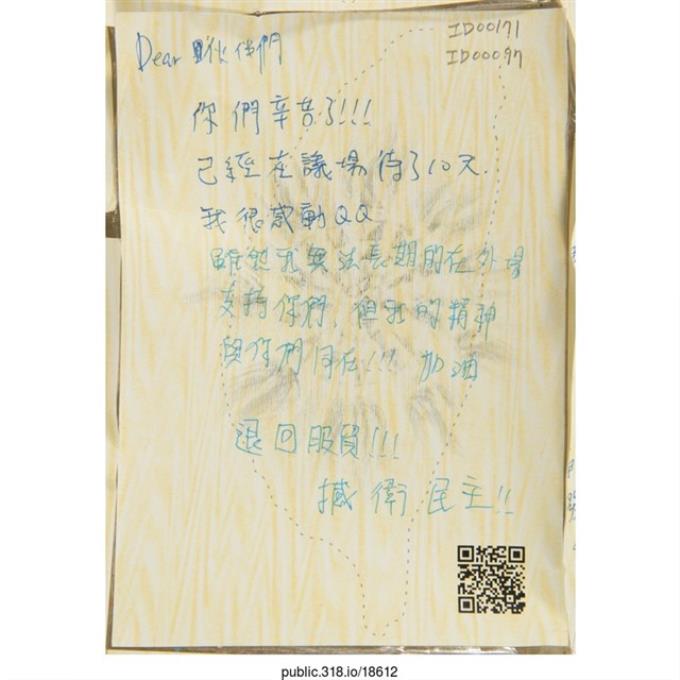 ID00171
ID00097
Dear 夥伙伴們
你們辛苦了!!!
已經在議場待了10天.
我很感動QQ
雖然我無法長期的在外場
支持你們，但我的精神
與你們同在!!! 加油
退回服貿!!!
捍衛民主!!
public.318.io/18612